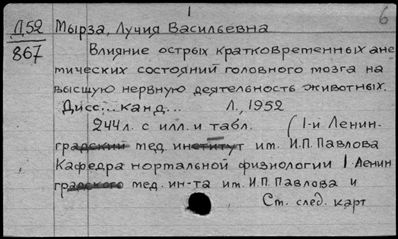 1
Д52 Мырза, Лучия Васильевна 6
867 Влияние острых кратковременных ане
мических состояний головного мозга на
высшую нервную деятельность животных.
Дисс... канд... Л., 1952
244 л. с илл. и табл. (1-й Ленин-
градский мед. институт им. И.П. Павлова
Кафедра нормальной физиологии 1 Ленин
градского мед. ин-та им. И.П. Павлова и
См. след. карт